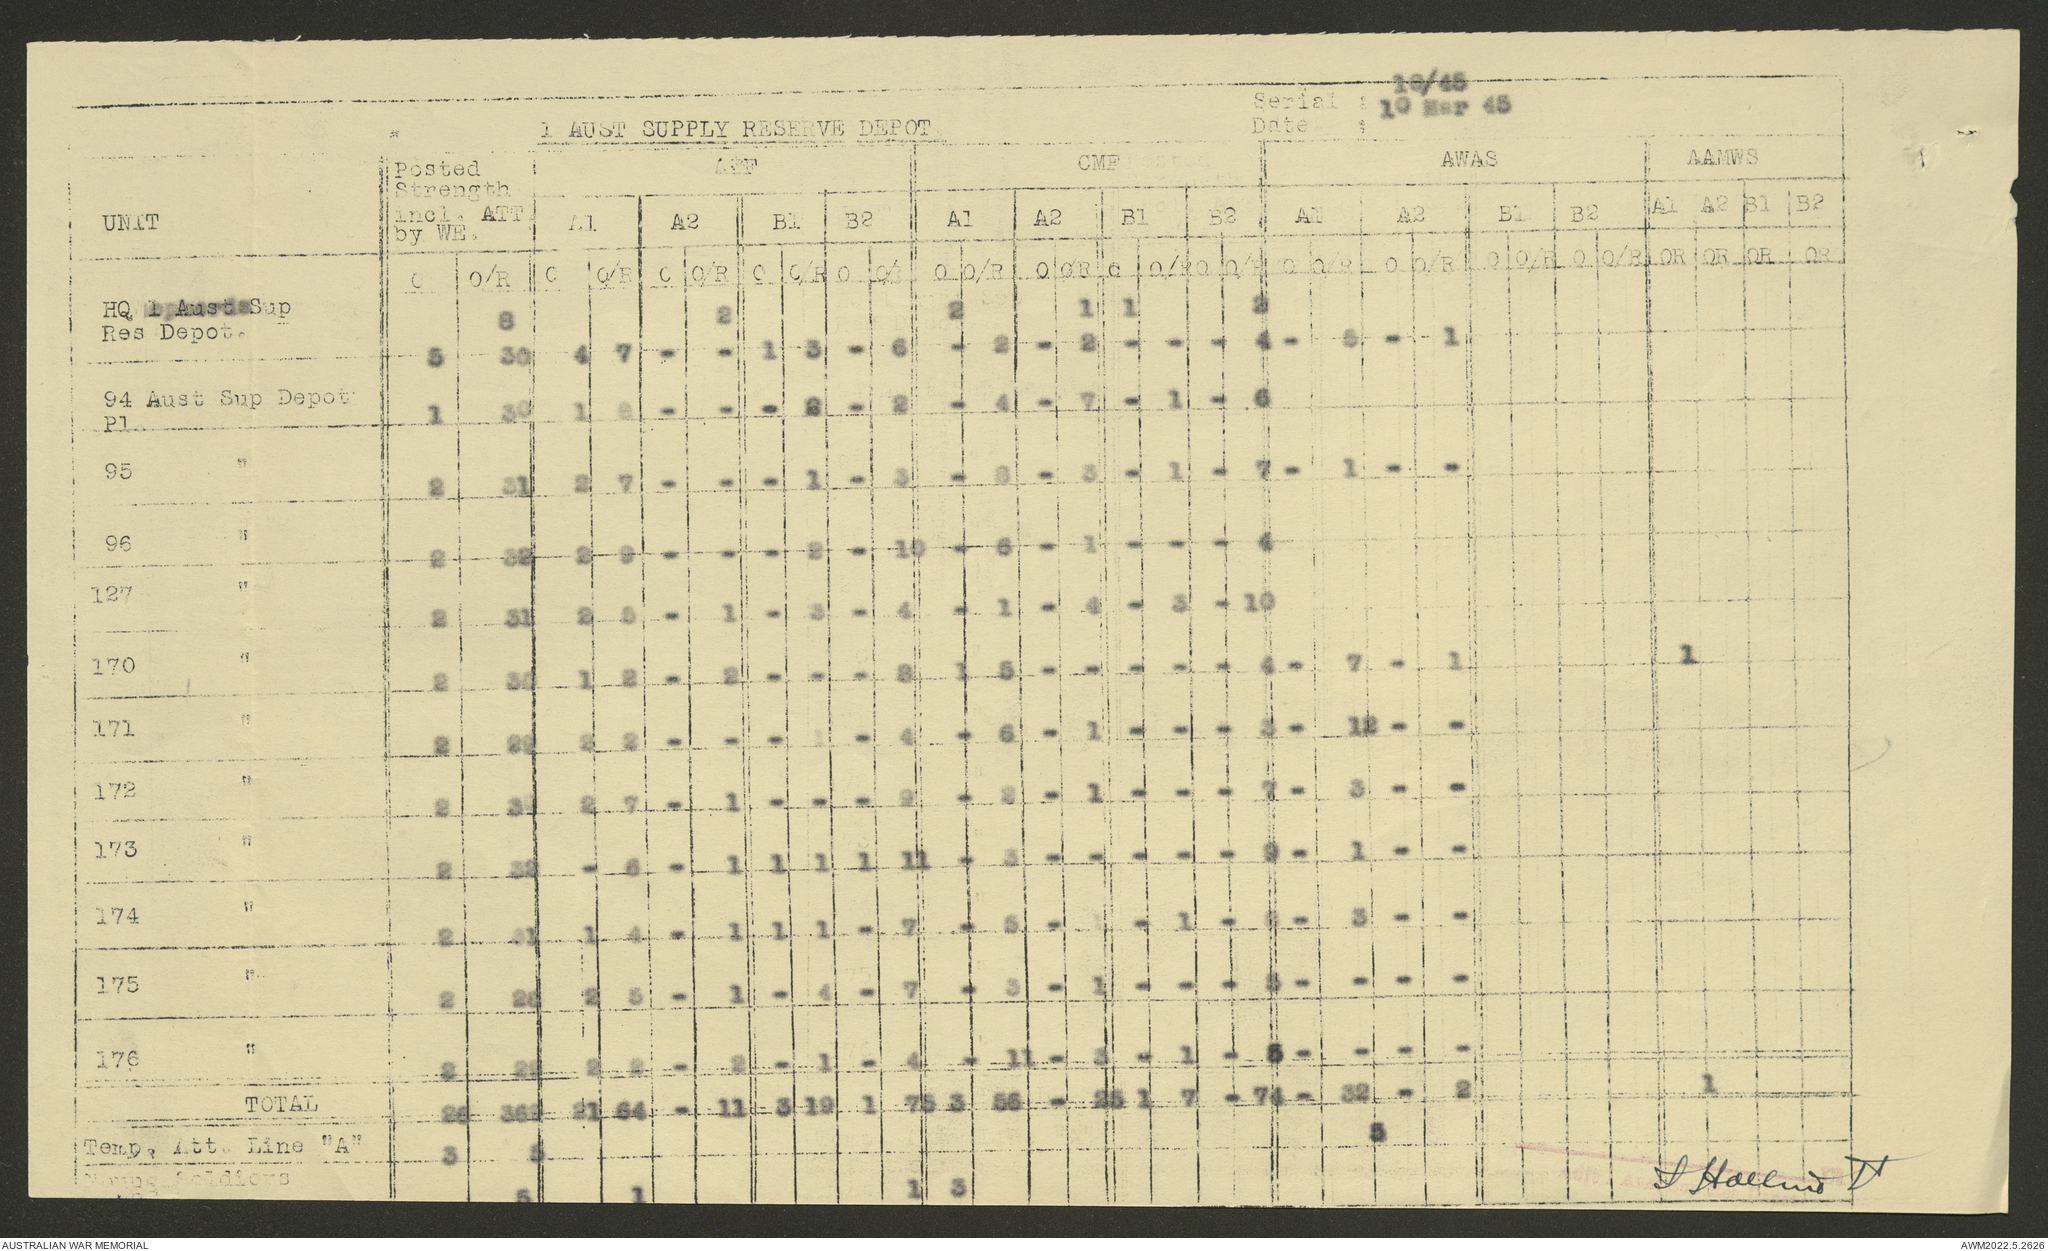 Serial : 10/45
1 AUST SUPPLY RESERVE DEPOT.
Date : 10 Mar 45
UNIT
Posted Strength incl. ATT by WE.
AIF CMF AWAS AAMWS
A1 A2 B1 B2 A1 A2 B1 B2 A1 A2 B1 B2 A1 A2 B1 B2
O O/R O O/R O O/R O O/R O O/R O O/R O O/R O O/R O O/R O O/R O O/R O O/R O O/R OR OR OR OR
HQ 1 Aust Sup 8 2 2 1 1 2
Res Depot. 5 30 4 7 - - 1 3 - 6 - 2 - 2 - - - 4 - - 1
94 Aust Sup Depot Pl. 1 30 1 - - - 2 - 2 - 4 - 7 - 1 - 6
95 " 2 31 2 7 - - - 1 - 3 - - 3 - 1 - 7 - 1 - -
96 " 2 32 2 9 - - - 2 - 10 - 6 - 1 - - - 4
127 " 2 31 2 - 1 - 3 - 4 - 1 - 4 - 3 - 10
170 " 2 1 2 - 2 - - - 8 1 5 - - - - - 4 - 7 - 1 1
171 " 2 29 2 2 - - - 1 - 4 - 6 - 1 - - - 3 - 12 - -
172 " 2 2 7 - 1 - - - 9 - 2 - 1 - - - 7 - 3 - -
173 " 2 32 - 6 - 1 1 1 1 11 - 3 - - - - - - 1 - -
174 " 2 31 1 4 - 1 1 1 - 7 - 5 - - 1 - - 3 - -
175 " 2 26 2 5 - 1 - 4 - 7 - 3 - 1 - - - 5 - - - -
176 " 2 2 2 - 2 - 1 - 4 - 11 - 3 - 1 - 5 - - - -
TOTAL 26 21 64 - 11 3 19 1 75 3 56 - 25 1 7 - 74 - 32 - 2 1
Temp. Att. Line "A" 3 5 5
Soldiers 5 1 1 3
AUSTRALIAN WAR MEMORIAL
AWM2022.5.2626